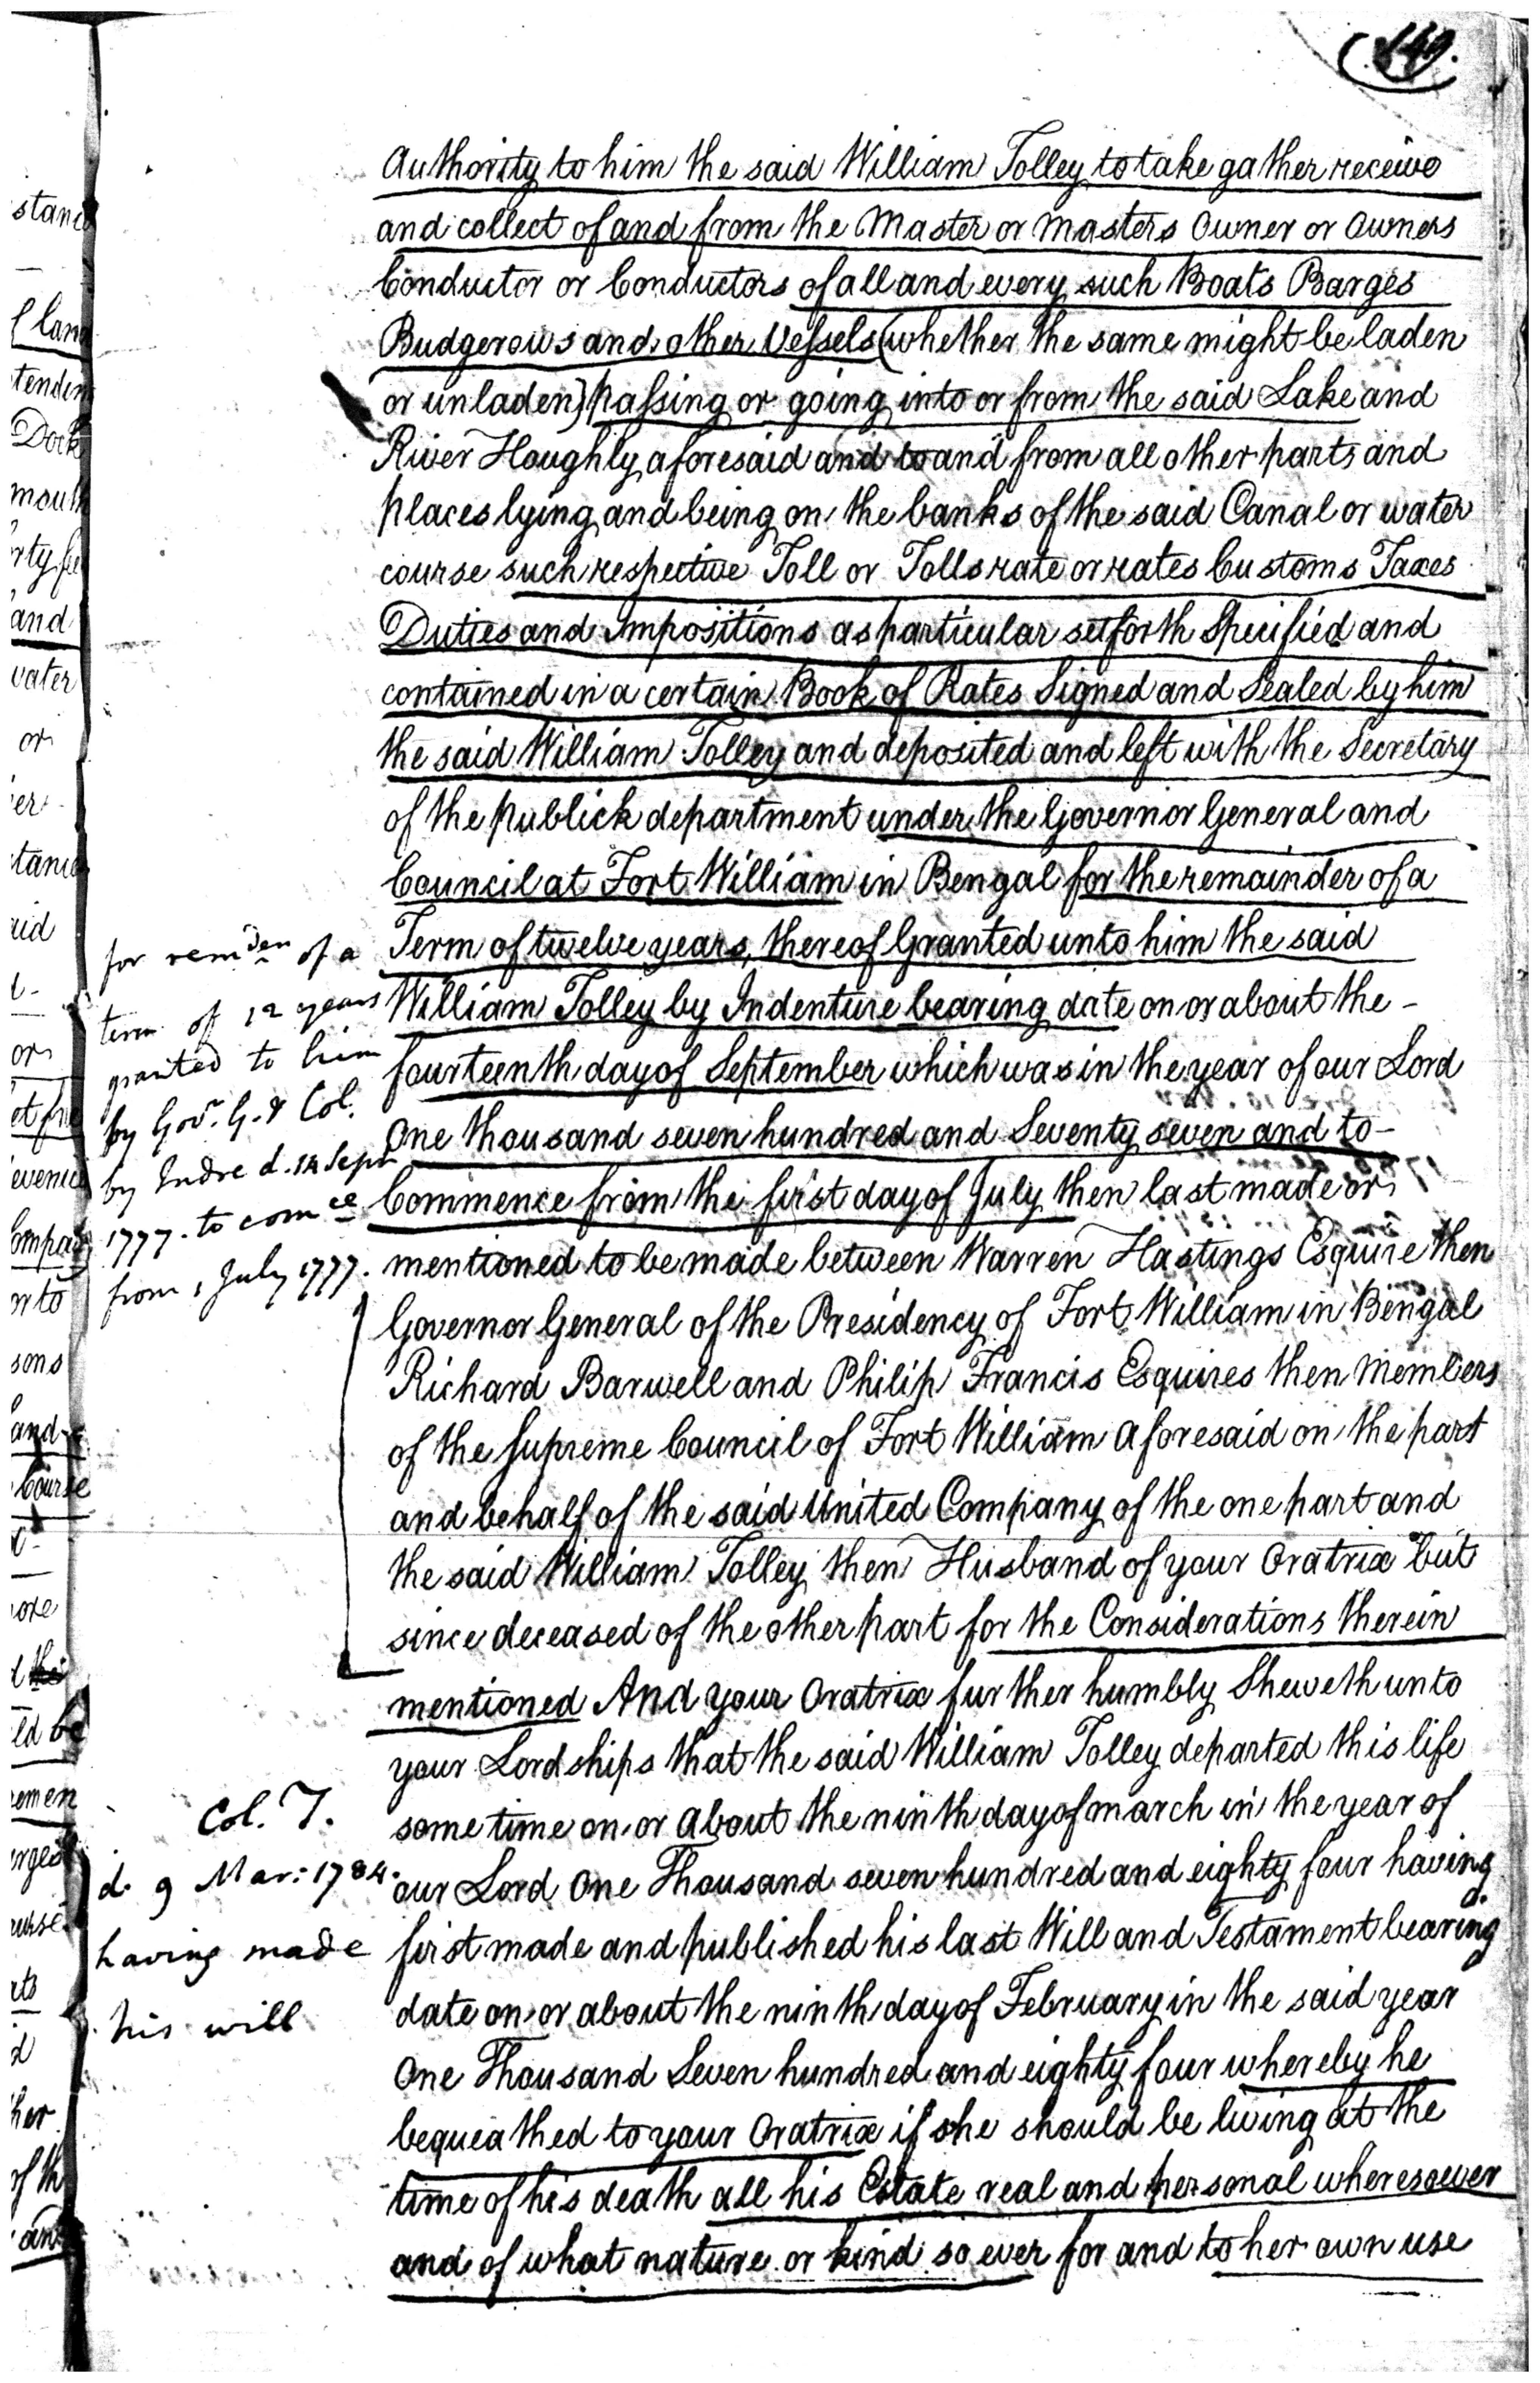 149.
authority to him the said William Tolley to take gather receive
and collect of and from the Master or Masters Owner or Owners
Conductor or Conductors of all and every such Boats Barges
Budgerows and other Vessels (whether the same might be laden
or unladen) passing or going into or from the said Lake and
River Houghly aforesaid and to and from all other parts and
places lying and being on the banks of the said Canal or water
course such respective Toll or Tolls rate or rates Customs Taxes
Duties and Impositions as particular set forth Specified and
contained in a certain Book of Rates Signed and Sealed by him
the said William Tolley and deposited and left with the Secretary
of the publick department under the Governor General and
Council at Fort William in Bengal for the remainder of a
Term of twelve years, thereof Granted unto him the said
William Tolley by Indenture bearing date on or about the -
fourteenth day of September which was in the year of our Lord
One thousand seven hundred and Seventy seven and to -
Commence from the first day of July then last made or
mentioned to be made between Warren Hastings Esquire then
Governor General of the Presidency of Fort William in Bengal
Richard Barwell and Philip Francis Esquires then Members
of the Supreme Council of Fort William aforesaid on the part
and behalf of the said United Company of the one part and
the said William Tolley then Husband of your Oratrix but
since deceased of the other part for the Considerations therein
mentioned And your Oratrix further humbly Sheweth unto
your Lordships that the said William Tolley departed this life
some time on or about the ninth day of march in the year of
our Lord One Thousand seven hundred and eighty four having
first made and published his last Will and Testament bearing
date on or about the ninth day of February in the said year
One Thousand Seven hundred and eighty four whereby he
bequeathed to your Oratrix if she should be living at the
time of his death all his Estate real and personal wheresoever
and of what nature or kind so ever for and to her own use
for remder of a
term of 12 years
granted to him
by Govr. G. & Col.
by Indre d. 14 Sepr
1777. to comce
from 1 July 1777.
Col. T.
d. 9 Mar: 1784.
having made
his will